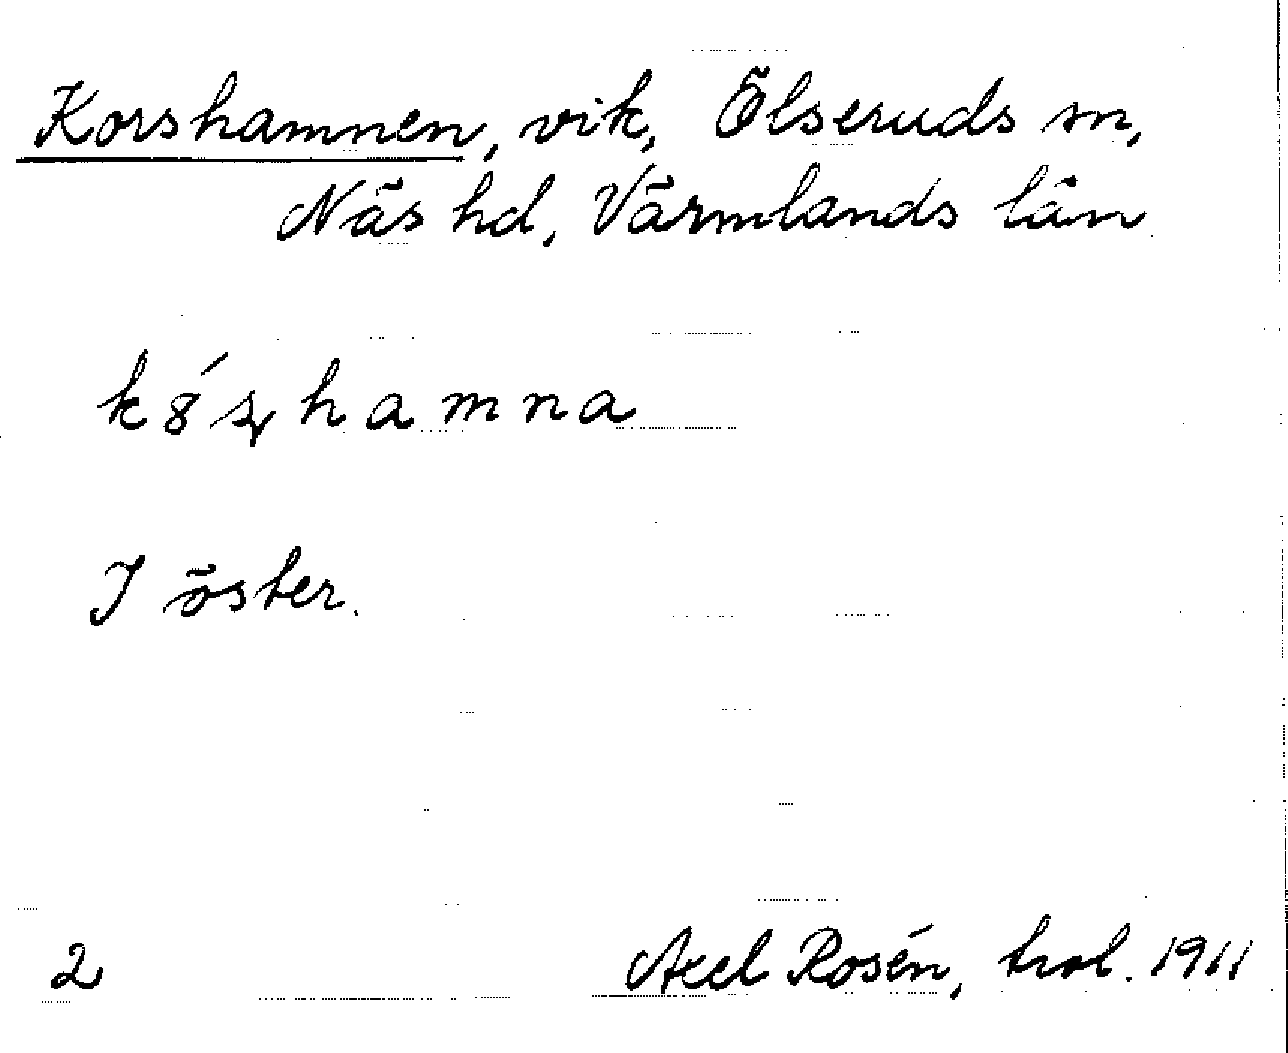 Korshamnen, vik, Ölseruds sn,
Näs hd, Värmlands län
k8́ʂhamna
I öster.
2
Axel Rosén, trol. 1911